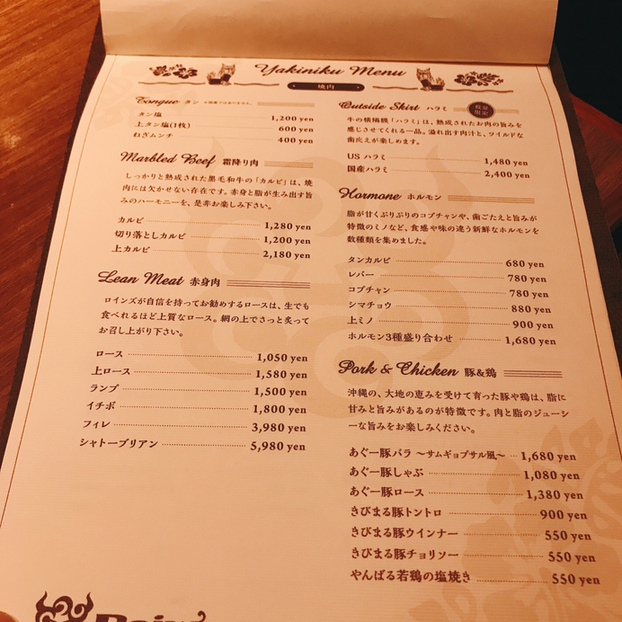 Yakiniku Menu
焼肉
Tongue タン
タン塩 1,200 yen
上タン塩(1枚) 600 yen
ねぎムンチ 400 yen
Marbled Beef 霜降り肉
しっかりと熟成された黒毛和牛の「カルビ」は、焼
肉には欠かせない存在です。赤身と脂が生み出す旨
みのハーモニーを、是非お楽しみ下さい。
カルビ 1,280 yen
切り落としカルビ 1,200 yen
上カルビ 2,180 yen
Lean Meat 赤身肉
ロインズが自信を持ってお勧めするロースは、生でも
食べれるほど上質なロース。網の上でさっと炙って
お召し上がり下さい。
ロース 1,050 yen
上ロース 1,580 yen
ランプ 1,500 yen
イチボ 1,800 yen
フィレ 3,980 yen
シャトーブリアン 5,980 yen
Outside Skirt ハラミ
数量
限定
牛の横隔膜「ハラミ」は、熟成されたお肉の旨みを
感じさせてくれる一品。溢れ出す肉汁と、ワイルドな
歯ごたえが楽しめます。
US ハラミ 1,480 yen
国産ハラミ 2,400 yen
Hormone ホルモン
脂が甘くぷりぷりのコプチャンや、歯ごたえと旨みが
特徴のミノなど、食感や味の違う新鮮なホルモンを
数種類を集めました。
タンカルビ 680 yen
レバー 780 yen
コプチャン 780 yen
シマチョウ 880 yen
上ミノ 900 yen
ホルモン3種盛り合わせ 1,680 yen
Pork & Chicken 豚&鶏
沖縄の、大地の恵みを受けて育った豚や鶏は、脂に
甘みと旨みがあるのが特徴です。肉と脂のジューシ
ーな旨みをお楽しみください。
あぐー豚バラ 〜サムギョプサル風〜 1,680 yen
あぐー豚しゃぶ 1,080 yen
あぐー豚ロース 1,380 yen
きびまる豚トントロ 900 yen
きびまる豚ウインナー 550 yen
きびまる豚チョリソー 550 yen
やんばる若鶏の塩焼き 550 yen